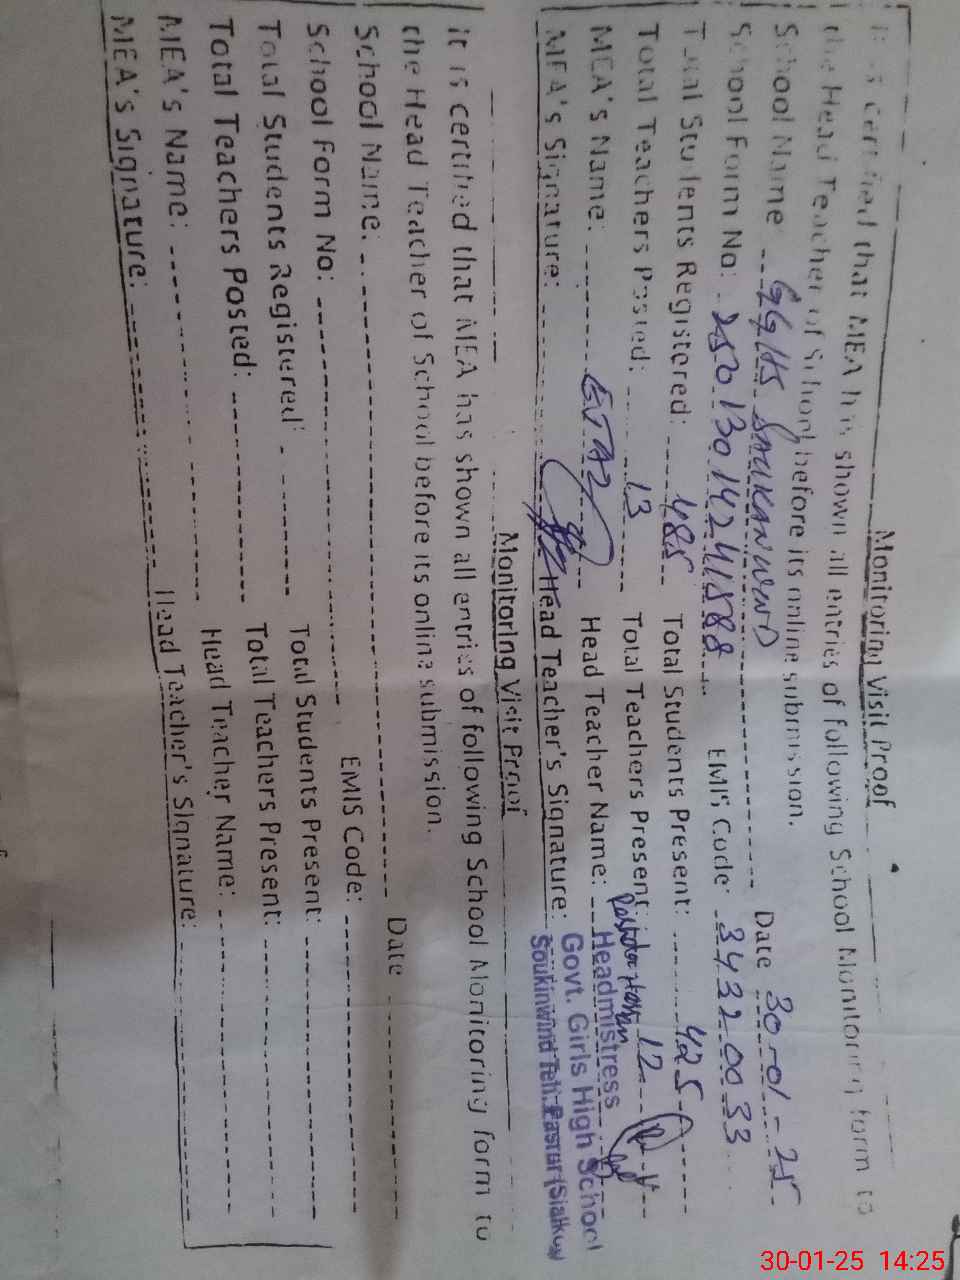 Monitoring Visit Proof
It is certified that MEA has shown all entries of following School Monitoring form to
the Head Teacher of School before its online submission.
School Name GGHS SAUKANWIND Date 30-01-25
School Form No: 250130142411588 EMIS Code: 34320033
Total Students Registered: 485 Total Students Present: 425
Total Teachers Posted: 13 Total Teachers Present: 12
MEA's Name: EJAZ Head Teacher Name:
MEA's Signature: Head Teacher's Signature:
Headmistress
Govt. Girls High School
Soukinwind Teh. Pasrur (Sialkot)
Monitoring Visit Proof
It is certified that MEA has shown all entries of following School Monitoring form to
the Head Teacher of School before its online submission.
School Name: Date
School Form No: EMIS Code:
Total Students Registered: Total Students Present:
Total Teachers Posted: Total Teachers Present:
MEA's Name: Head Teacher Name:
MEA's Signature: Head Teacher's Signature:
30-01-25 14:25